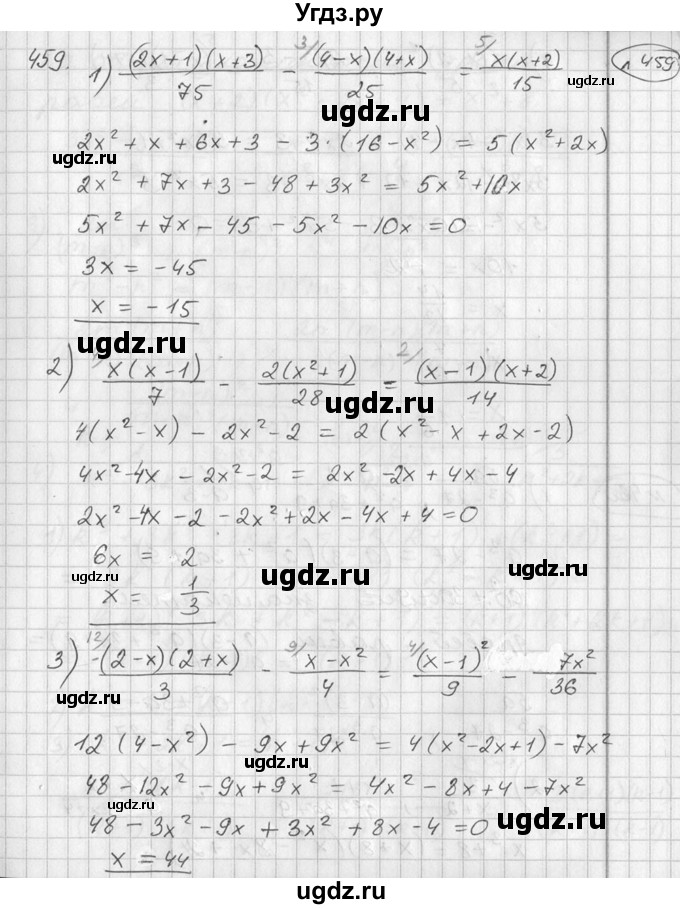 Угдз.ру
459. 1) (2x+1)(x+3)/75 - 3/ (4-x)(4+x)/25 = 5/ x(x+2)/15 459
ugdz.ru
ugdz.ru
ugdz.ru
2x² + x + 6x + 3 - 3·(16 - x²) = 5(x² + 2x)
ugdz.ru
2x² + 7x + 3 - 48 + 3x² = 5x² + 10x
5x² + 7x - 45 - 5x² - 10x = 0
3x = -45
x = -15
ugdz.ru
2) x(x-1)/7 - 2(x²+1)/28 = 2/ (x-1)(x+2)/14
ugdz.ru
ugdz.ru
4(x² - x) - 2x² - 2 = 2(x² - x + 2x - 2)
4x² - 4x - 2x² - 2 = 2x² - 2x + 4x - 4
2x² - 4x - 2 - 2x² + 2x - 4x + 4 = 0
6x = 2
ugdz.ru
ugdz.ru
ugdz.ru
x = 1/3
3) 12/ (2-x)(2+x)/3 - 9/ x-x²/4 = 4/ (x-1)²/9 - 7x²/36
ugdz.ru
ugdz.ru
12(4 - x²) - 9x + 9x² = 4(x² - 2x + 1) - 7x²
ugdz.ru
48 - 12x² - 9x + 9x² = 4x² - 8x + 4 - 7x²
ugdz.ru
48 - 3x² - 9x + 3x² + 8x - 4 = 0
x = 44
ugdz.ru
ugdz.ru
ugdz.ru